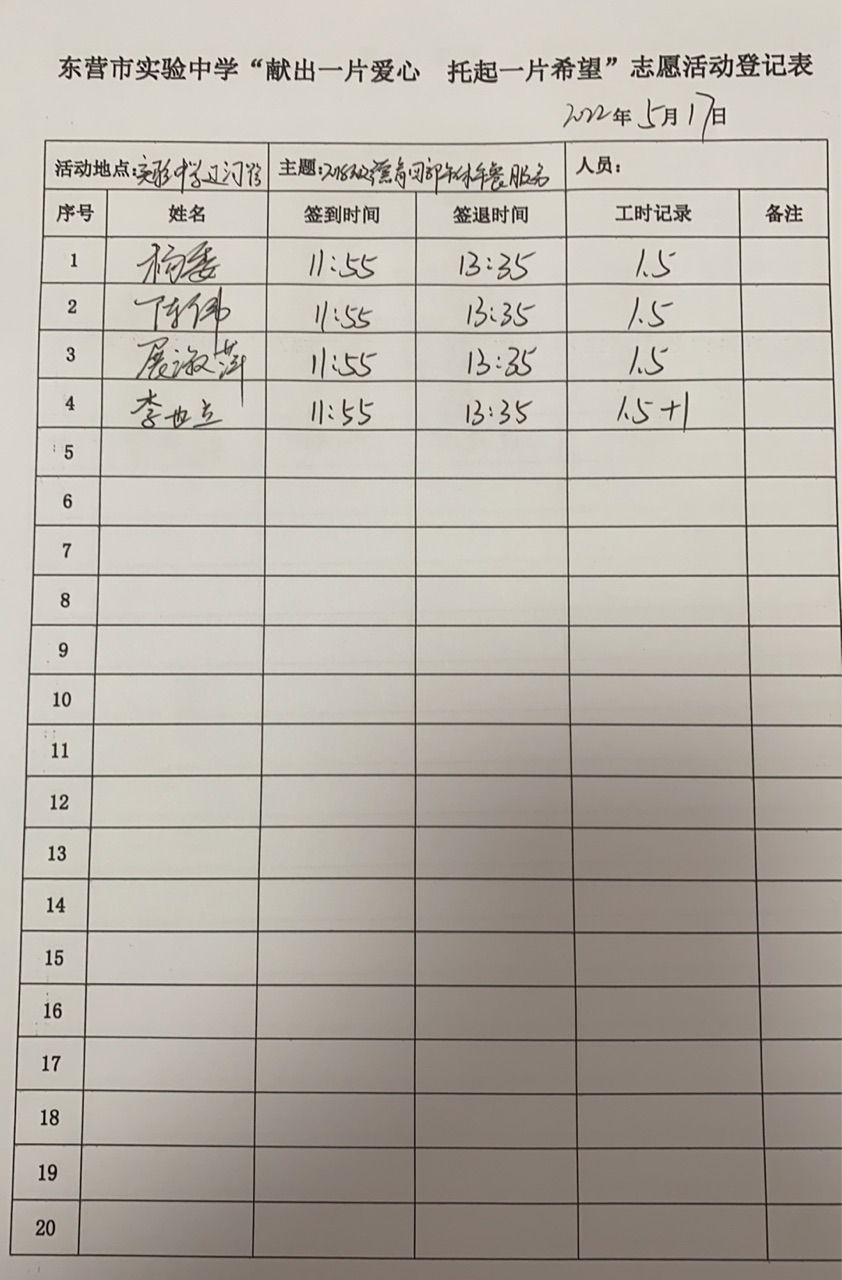 东营市实验中学“献出一片爱心 托起一片希望”志愿活动登记表
2022年5月17日
活动地点:实验中学 主题:德育 午休午餐服务 人员:
序号 姓名 签到时间 签退时间 工时记录 备注
1 杨 11:55 13:35 1.5
2 陈伟 11:55 13:35 1.5
3 展淑萍 11:55 13:35 1.5
4 李世立 11:55 13:35 1.5+1
5
6
7
8
9
10
11
12
13
14
15
16
17
18
19
20